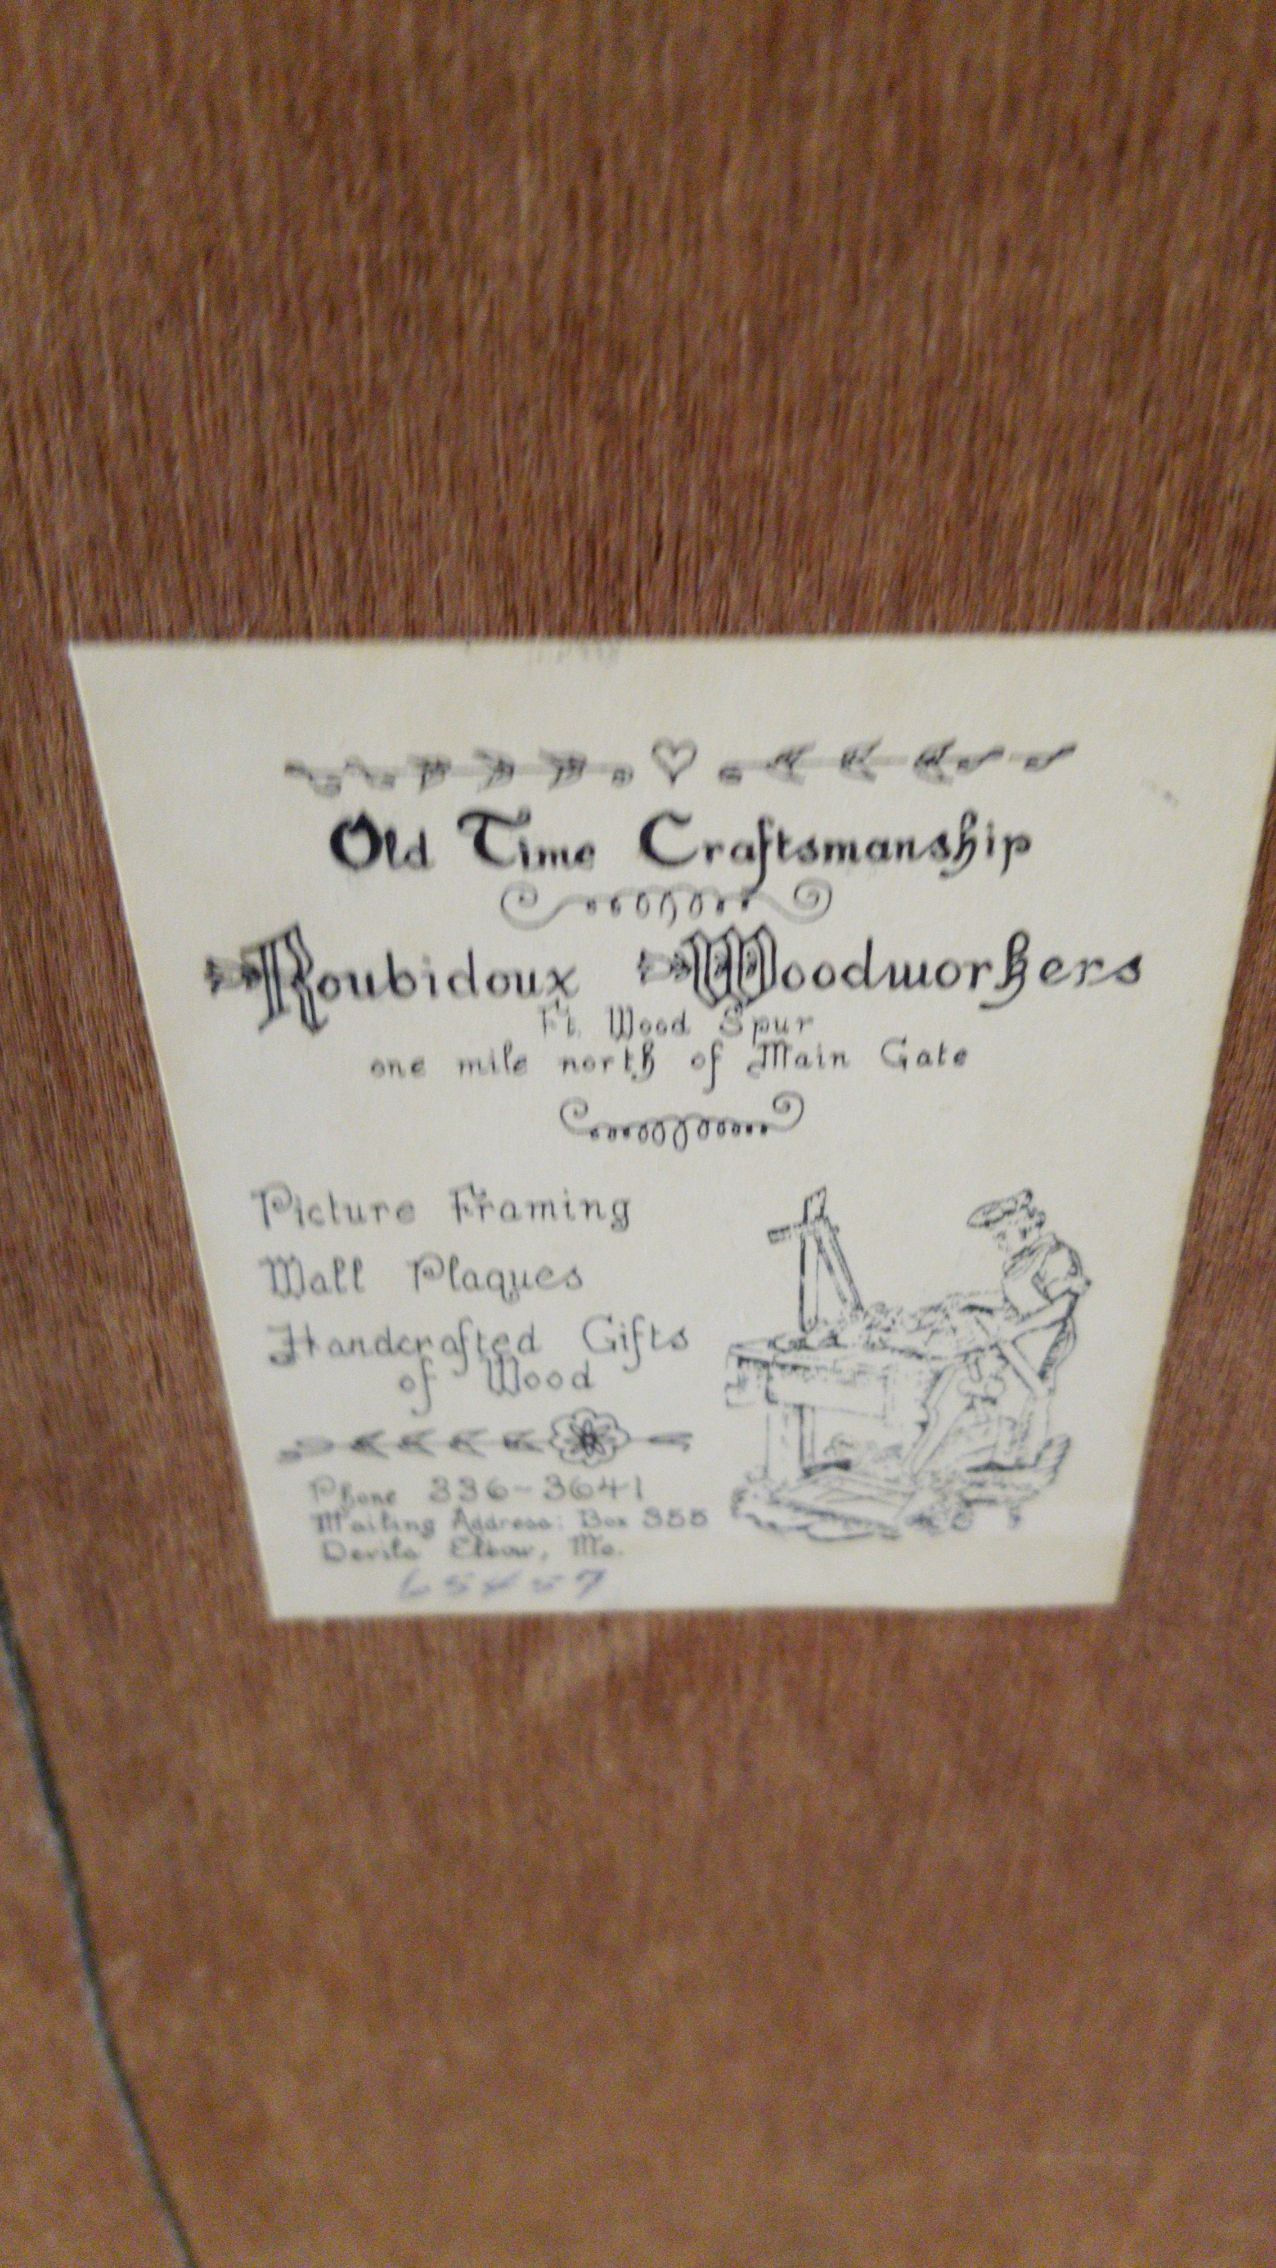 Old Time Craftsmanship
Roubidoux Woodworkers
Ft. Wood Spur
one mile north of Main Gate
Picture Framing
Wall Plaques
Handcrafted Gifts
of Wood
Phone 336-3641
Mailing Address: Box 355
Devils Elbow, Mo.
65457